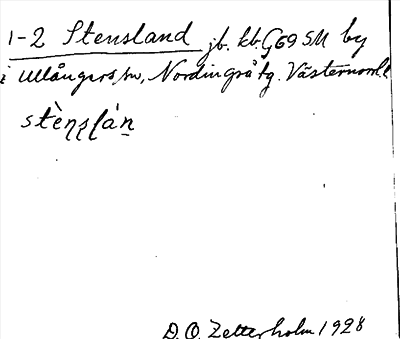 1-2 Stensland jb. kb. G69 SM by
i Ullångers sn, Nordingrå tg. Västernorrl. l
stènslán
D. O. Zetterholm 1928